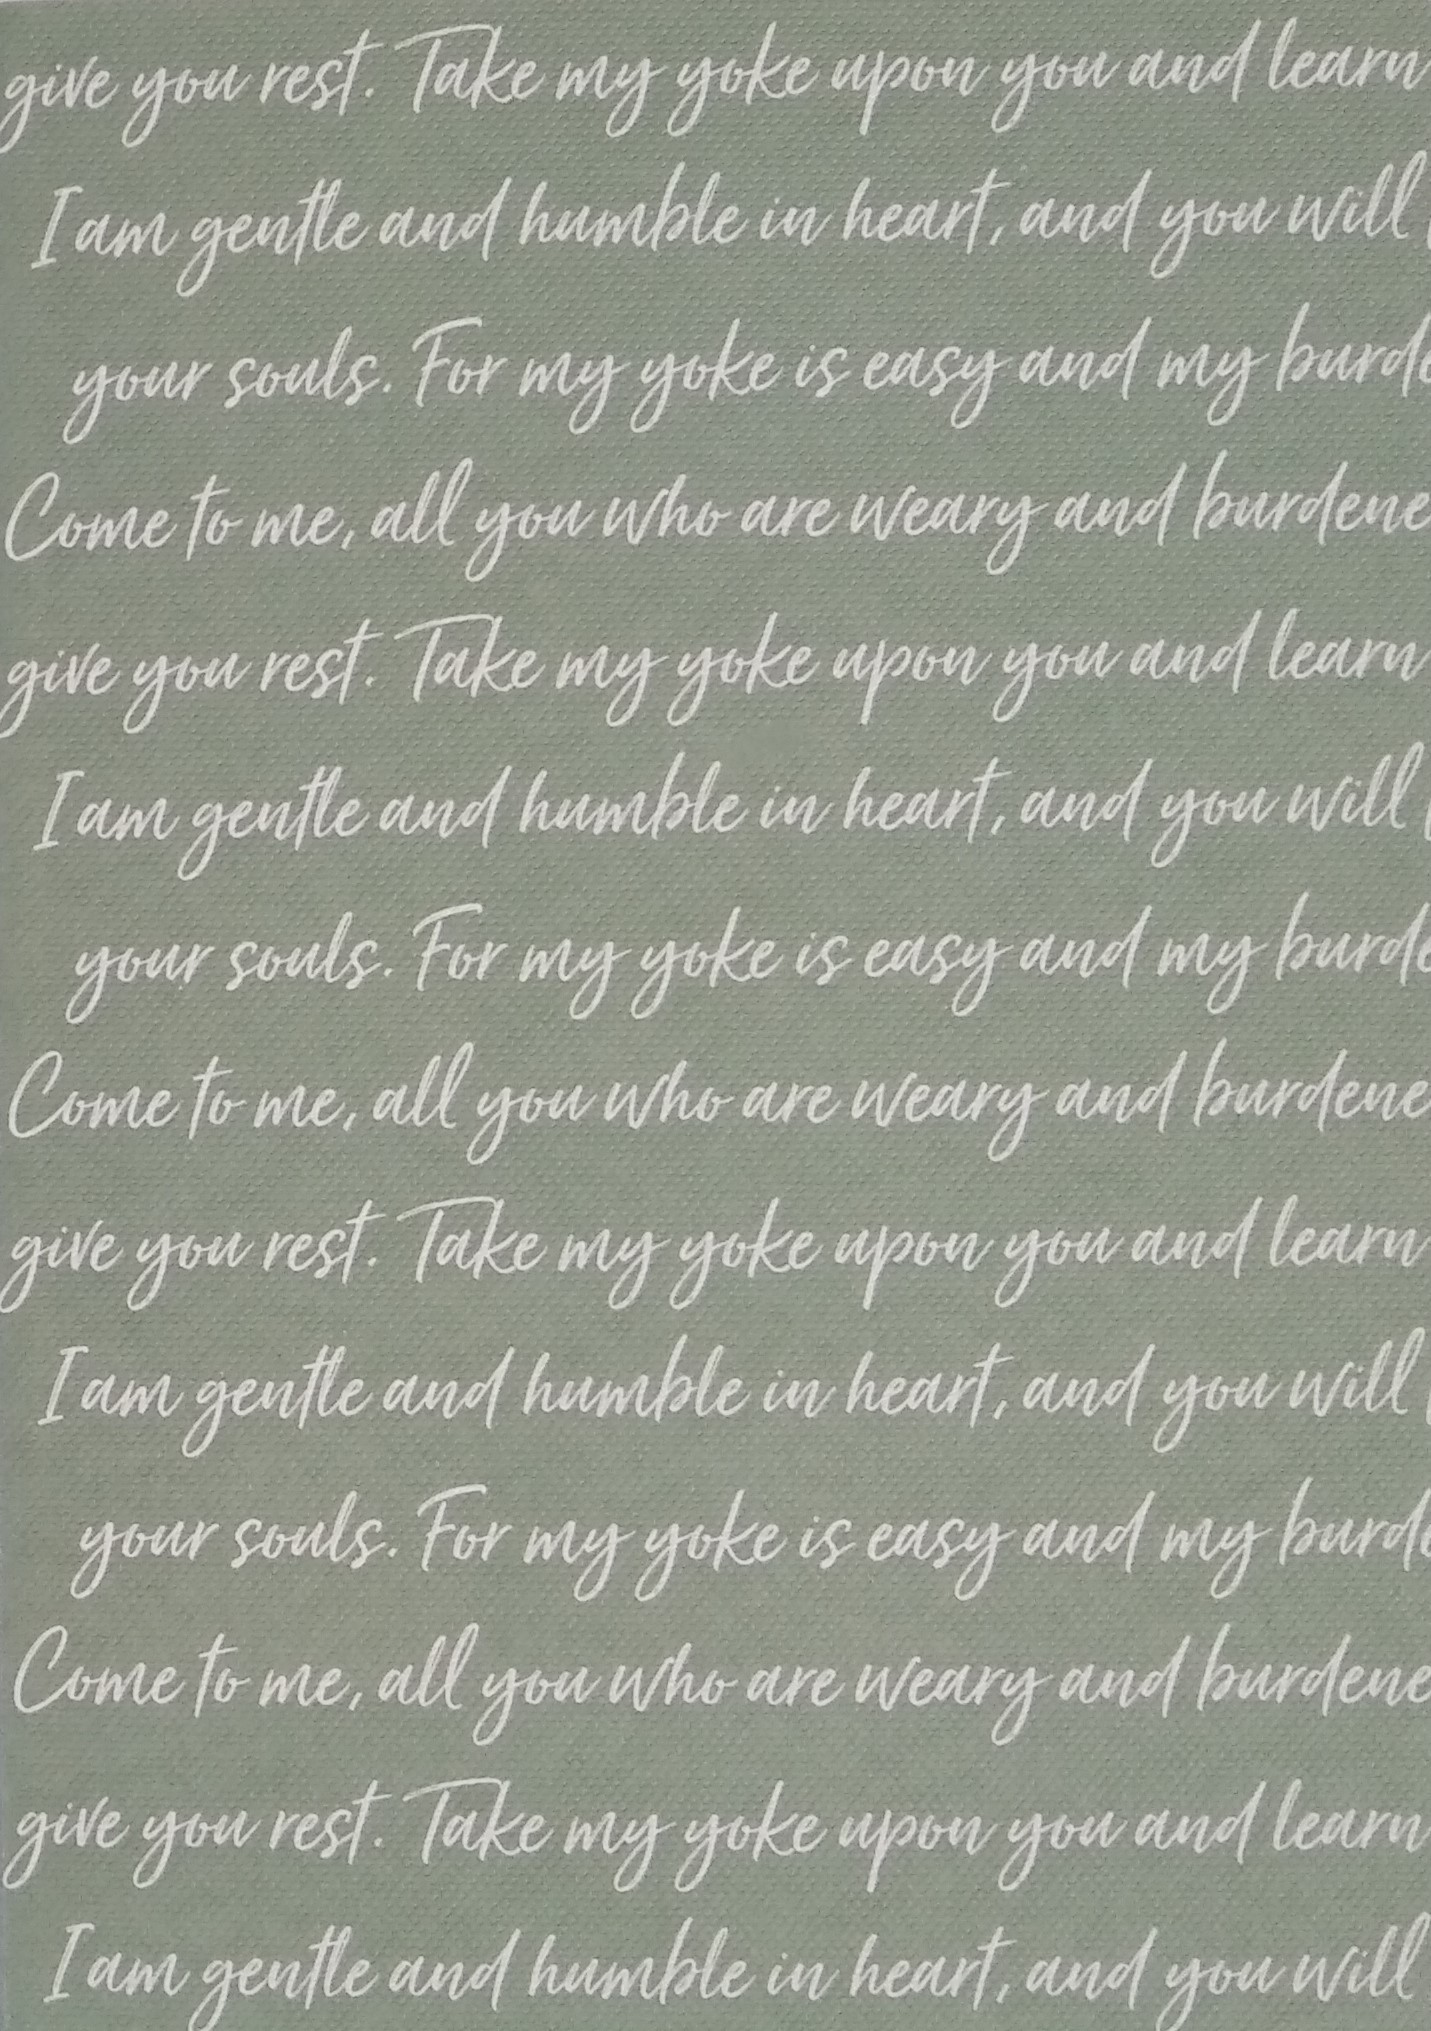 give you rest. Take my yoke upon you and learn
I am gentle and humble in heart, and you will
your souls. For my yoke is easy and my burde
Come to me, all you who are weary and burdene
give you rest. Take my yoke upon you and learn
I am gentle and humble in heart, and you will
your souls. For my yoke is easy and my burde
Come to me, all you who are weary and burdene
give you rest. Take my yoke upon you and learn
I am gentle and humble in heart, and you will
your souls. For my yoke is easy and my burde
Come to me, all you who are weary and burdene
give you rest. Take my yoke upon you and learn
I am gentle and humble in heart, and you will